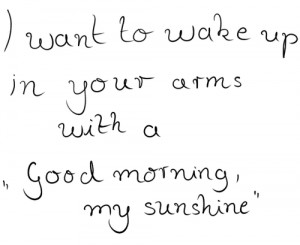 I want to wake up
in your arms
with a
„Good morning,
my sunshine"